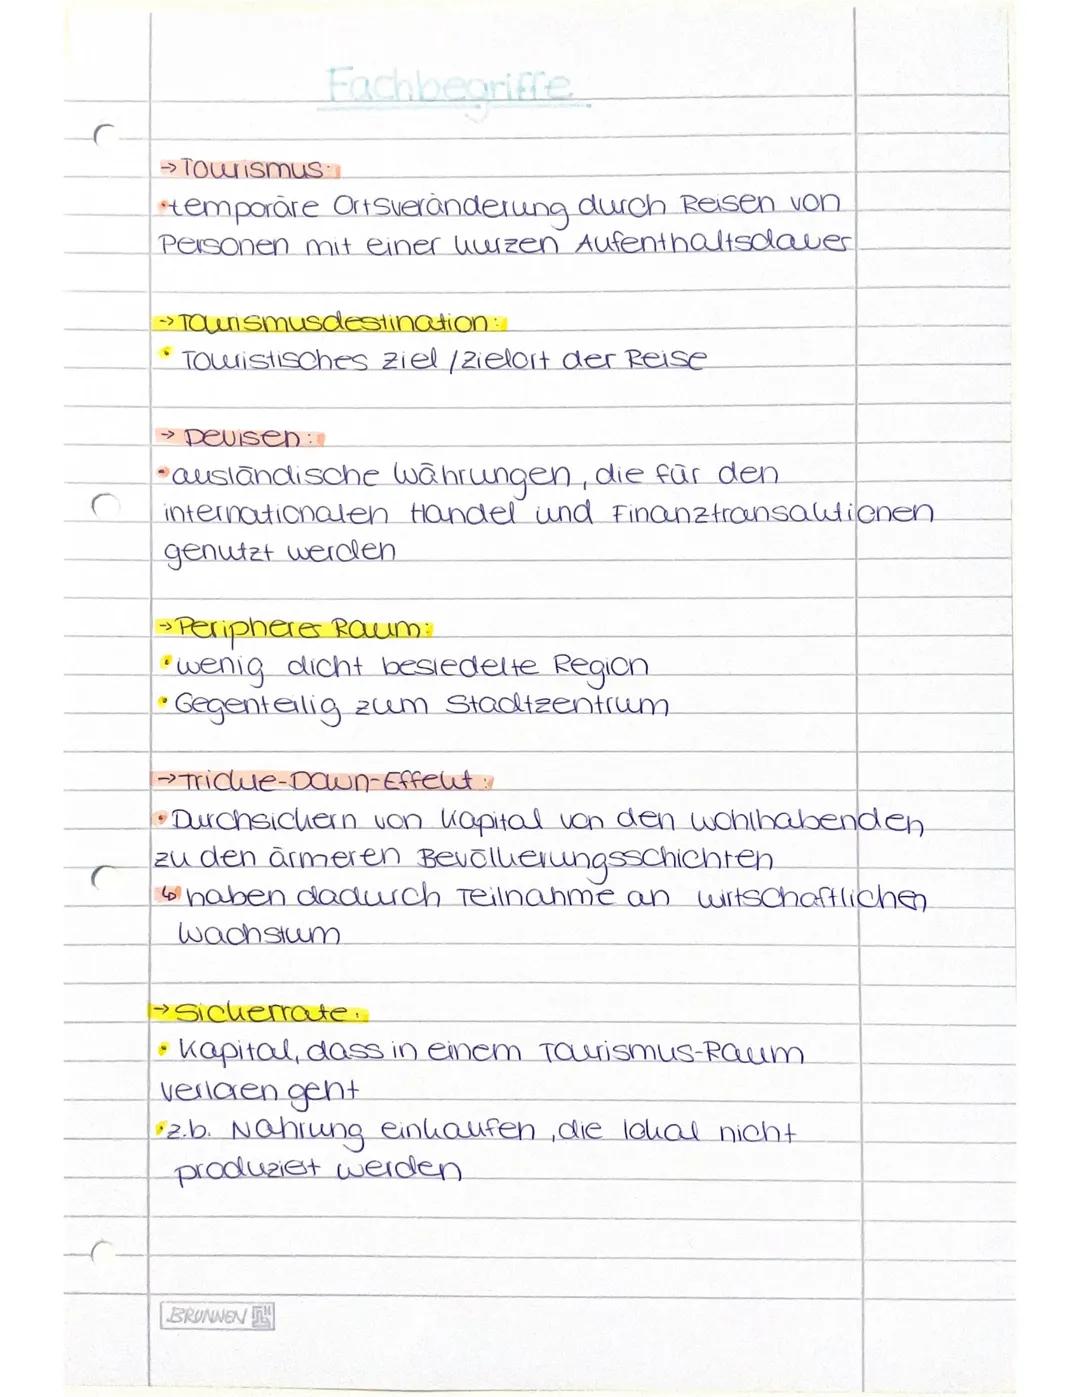 Fachbegriffe
→ Tourismus:
• temporäre Ortsveränderung durch Reisen von
Personen mit einer kurzen Aufenthaltsdauer
→ Tourismusdestination:
• Touristisches Ziel / Zielort der Reise
→ Devisen:
• ausländische Währungen, die für den
internationalen Handel und Finanztransaktionen
genutzt werden
→ Peripherer Raum:
• wenig dicht besiedelte Region
• Gegenteilig zum Stadtzentrum
→ Trickle-Down-Effekt:
• Durchsickern von Kapital von den wohlhabenden
zu den ärmeren Bevölkerungsschichten
↳ haben dadurch Teilnahme an wirtschaftlichen
Wachstum
→ Sickerrate:
• Kapital, dass in einem Tourismus-Raum
verloren geht
• z.b. Nahrung einkaufen, die lokal nicht
produziert werden
BRUNNEN